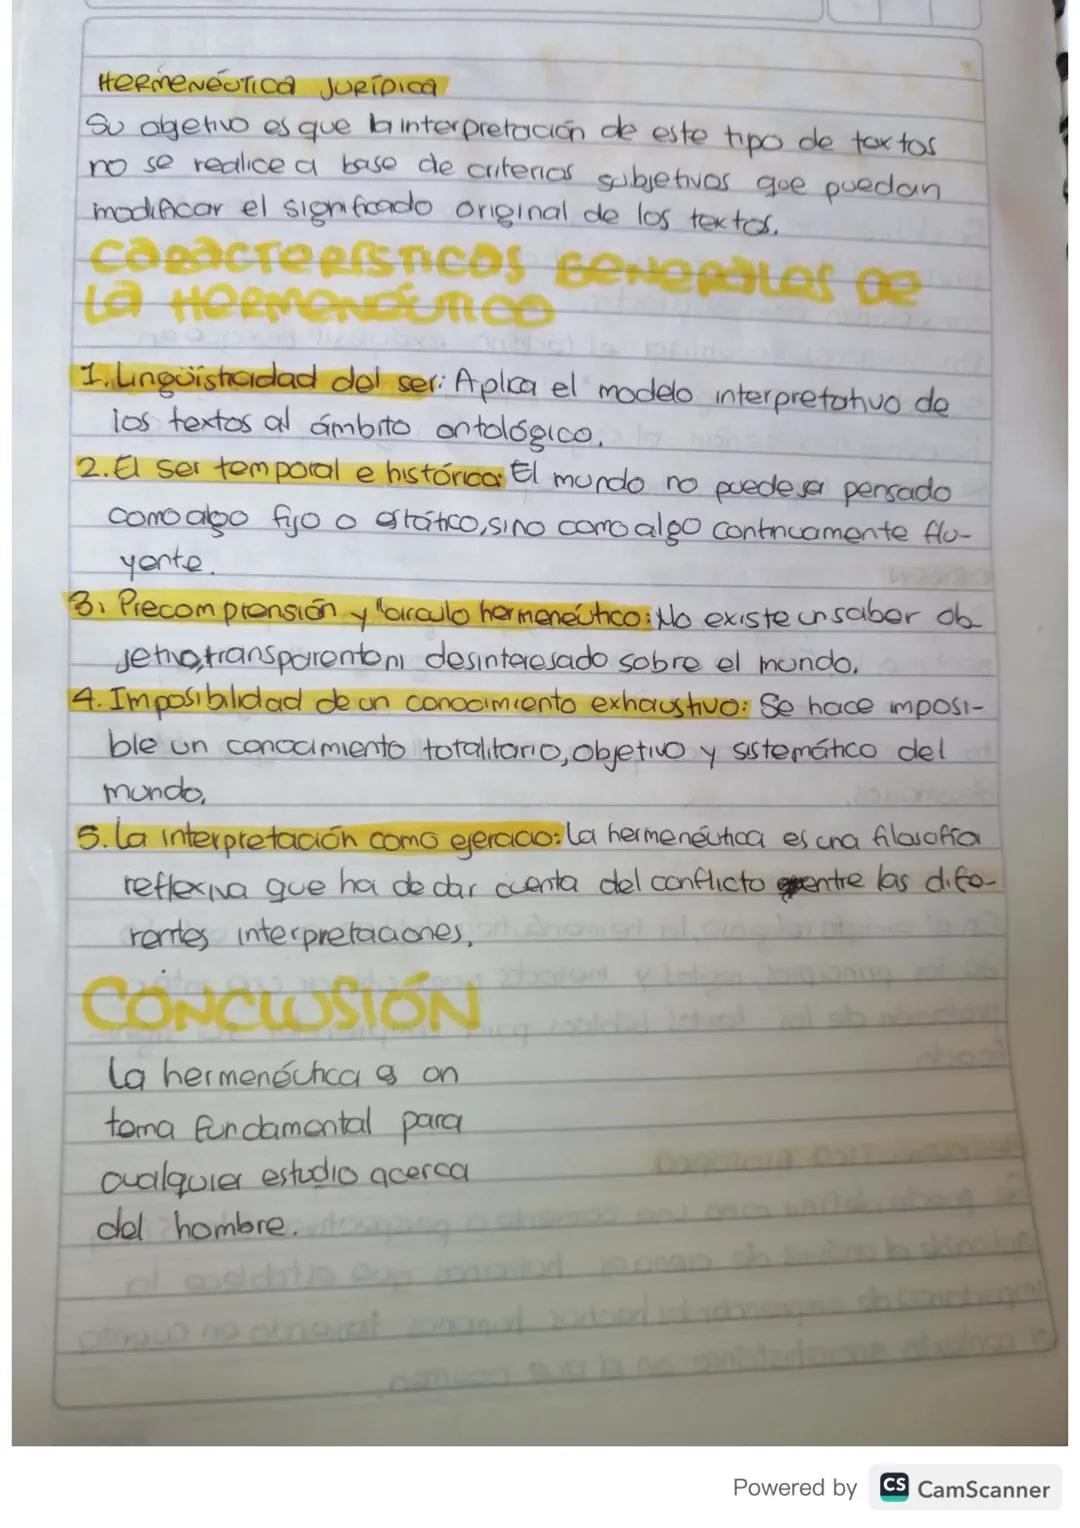 HERMENÉUTICA JURÍDICA
Su objetivo es que la interpretación de este tipo de textos
no se realice a base de criterios subjetivos que puedan
modificar el significado original de los textos.
CARACTERÍSTICAS GENERALES DE
LA HERMENÉUTICA
1. Lingüisticidad del ser: Aplica el modelo interpretativo de
los textos al ámbito ontológico.
2. El ser temporal e histórico: El mundo no puede ser pensado
como algo fijo o estático, sino como algo continuamente flu-
yente.
3. Precomprensión y "círculo hermenéutico: No existe un saber ob
jetivo, transparente ni desinteresado sobre el mundo.
4. Imposibilidad de un conocimiento exhaustivo: Se hace imposi-
ble un conocimiento totalitario, objetivo y sistemático del
mundo.
5. La interpretación como ejercicio: La hermenéutica es una filosofía
reflexiva que ha de dar cuenta del conflicto entre las dife-
rentes interpretaciones.
CONCLUSIÓN
La hermenéutica es un
tema fundamental para
cualquier estudio acerca
del hombre.
Powered by CS CamScanner